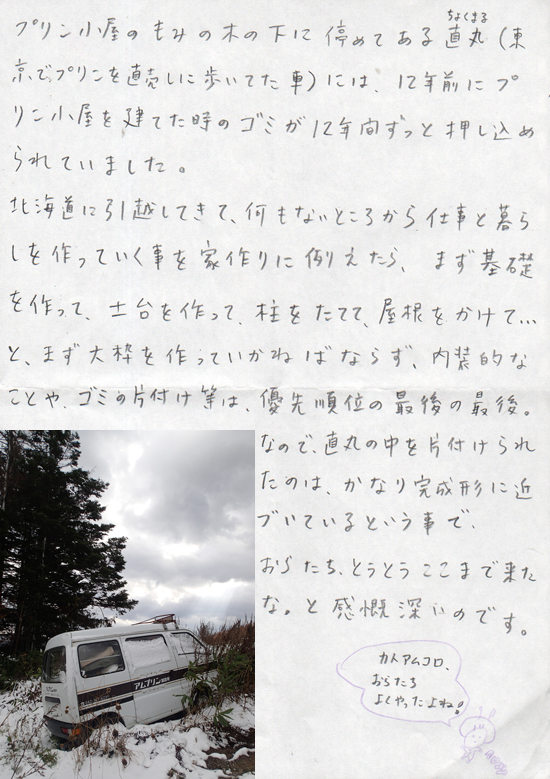 ちょくまる
プリン小屋のもみの木の下に停めてある直丸(東
京でプリンを直売しに歩いてた車)には、12年前にプ
リン小屋を建てた時のゴミが12年間ずっと押し込め
られていました。
北海道に引越してきて、何もないところから仕事と暮ら
しを作っていく事を家作りに例えたら、まず基礎
を作って、土台を作って、柱をたてて、屋根をかけて…
と、まず大枠を作っていかねばならず、内装的な
ことや、ゴミの片付け等は、優先順位の最後の最後。
なので、直丸の中を片付けられ
たのは、かなり完成形に近
づいているという事で、
おらたち、とうとうここまで来た
な。と感慨深いのです。
カトアムコロ、
おらたち
よくやったよね!
アムプリン